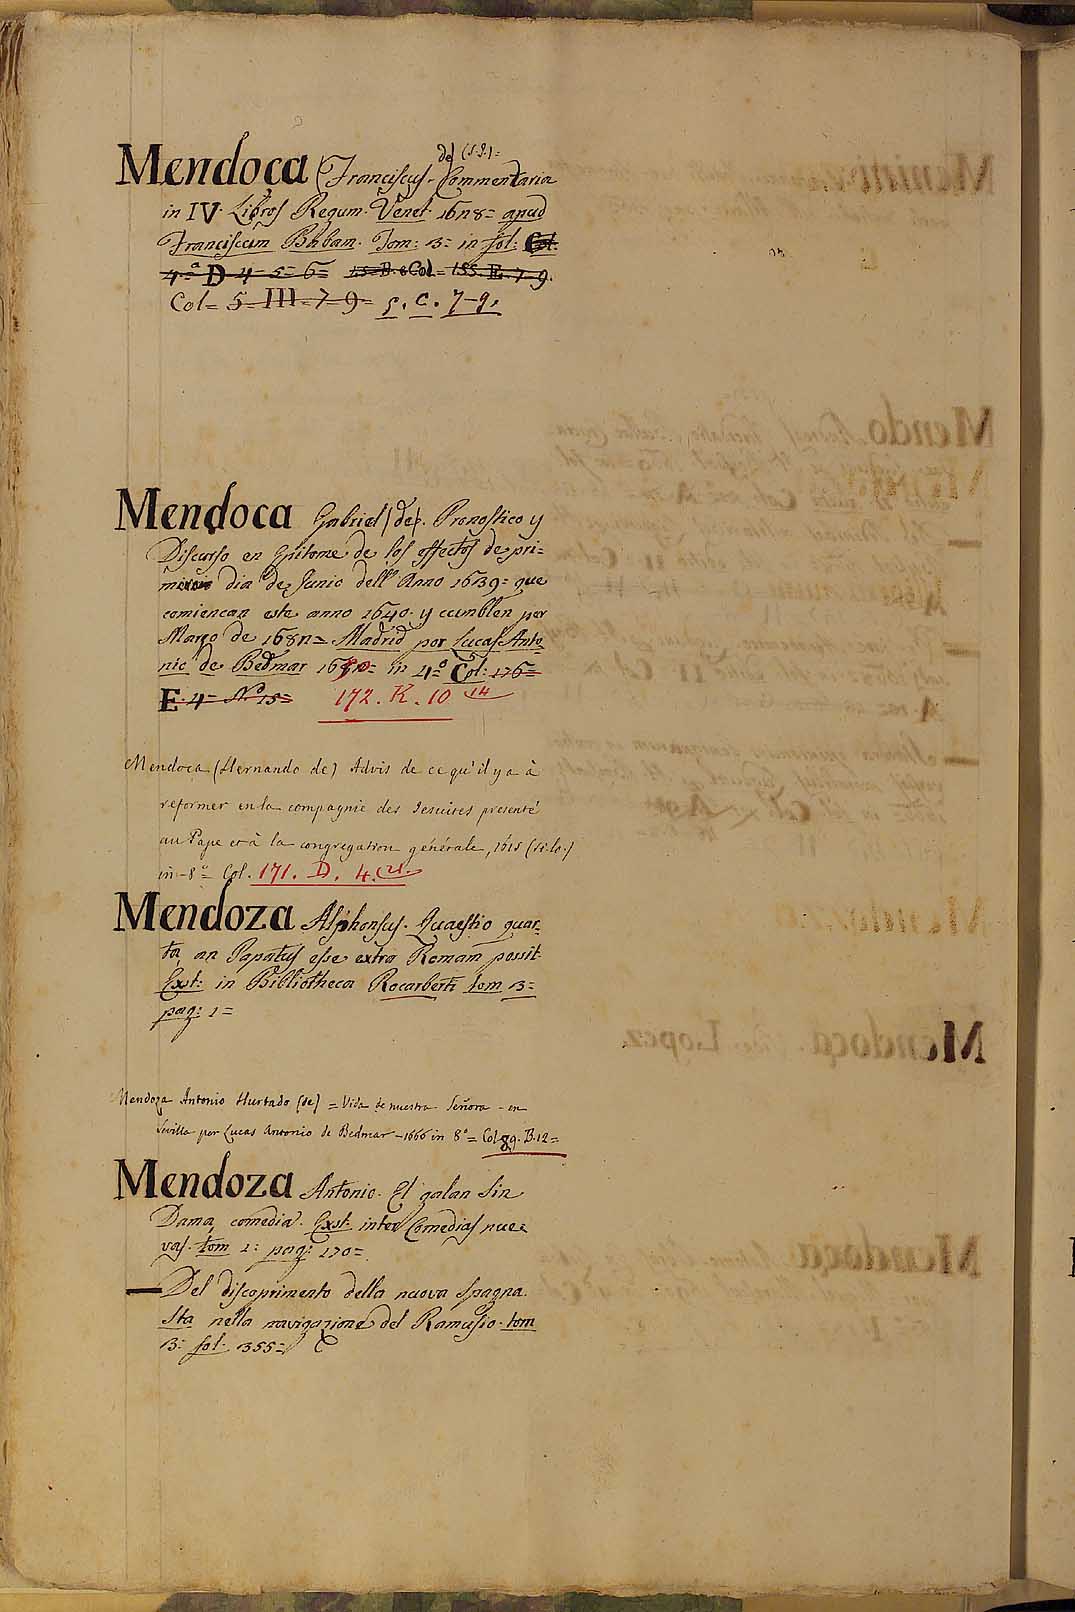 Mendoca (Franciscus de (S.J.)= Commentaria
in IV. Libros Regum. Venet. 16n8= apud
Franciscum Babam. Tom: 3= in fol: Col.
4ª D 4 5= 6= 15= B. 6 Col= 155. E. 7 9.
Col= 5= III= 7 9= 5. C. 7-9.
Mendoca Gabriel (de). Pronostico y
Discurso en Epitome de los effectos de pri=
mero dia de Junio dell Anno 1639= que
comiencan este anno 1640. y cumblen por
Março de 168n= Madrid por Lucas Anto
nio de Bedmar in 4º Col: 176=
E. 4 Nº 15= 172. K. 10 14
Mendoca (Hernando de) Advis de ce qu'il y a à
reformer en la compagnie des Jesuites presenté
au Pape et à la congregation générale, 1615 (s.lo.)
in-8º= Col. 171. D. 4. (21.
Mendoza Alphonsus. Quaestio quar-
ta, an Papatus esse extra Romam possit.
Exst: in Bibliotheca Rocarberti tom 3=
pag: 1=
Mendoza Antonio Hurtado (de) = Vida de nuestra Señora - en
Sevilla por Lucas Antonio de Bedmar - 1666 in 8º= Col 89. B. 12=
Mendoza Antonio. El galan sin
Dama, comedia. Exst. inter Comedias nue=
vas. tom 1: pag: 170=
— Del discoprimento della nuova Spagna.
Sta nella navigazione del Ramusio. tom
3= fol. 355=